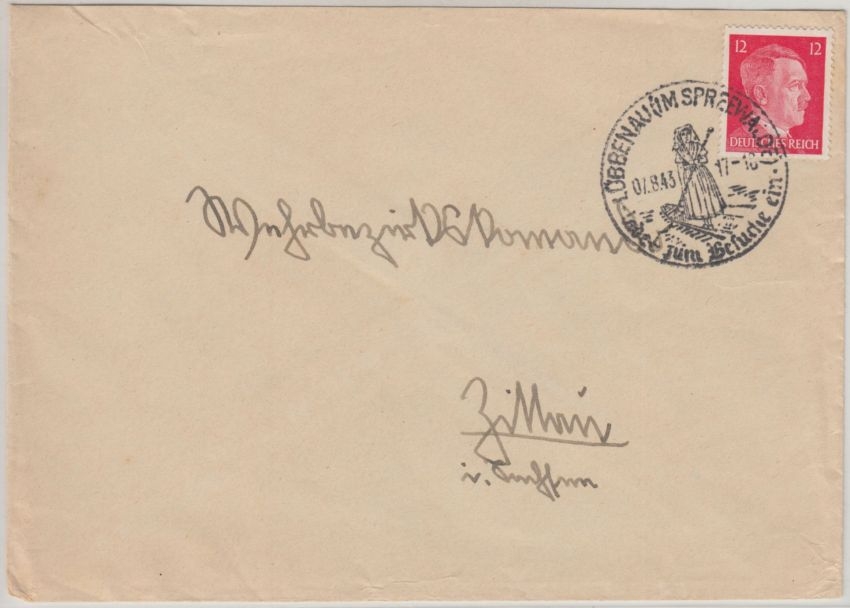 12 12
DEUTSCHES REICH
LÜBBENAU (IM SPREEWALDE)
07.8.43 17-18
ladet zum Besuche ein.
Wehrbezirkskomando
Zittau
i. Sachsen